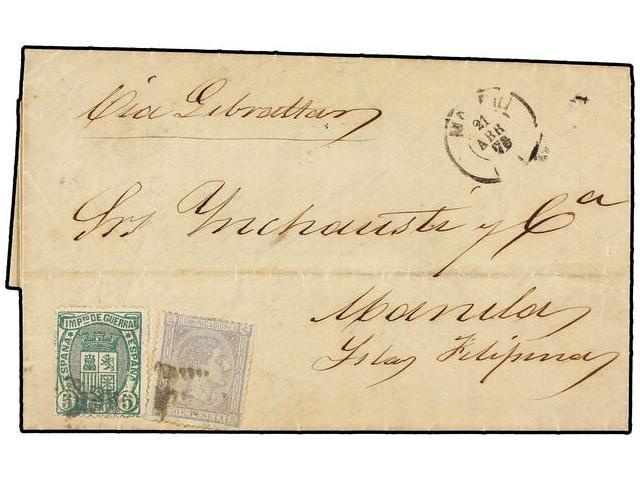 Via Gibraltar
21
ABR
Srs Ynchausti y Cª
Manila
Islas Filipinas
IMPTO DE GUERRA
ESPAÑA ESPAÑA
5 5
COMUNICACIONES
10 C. PESETA